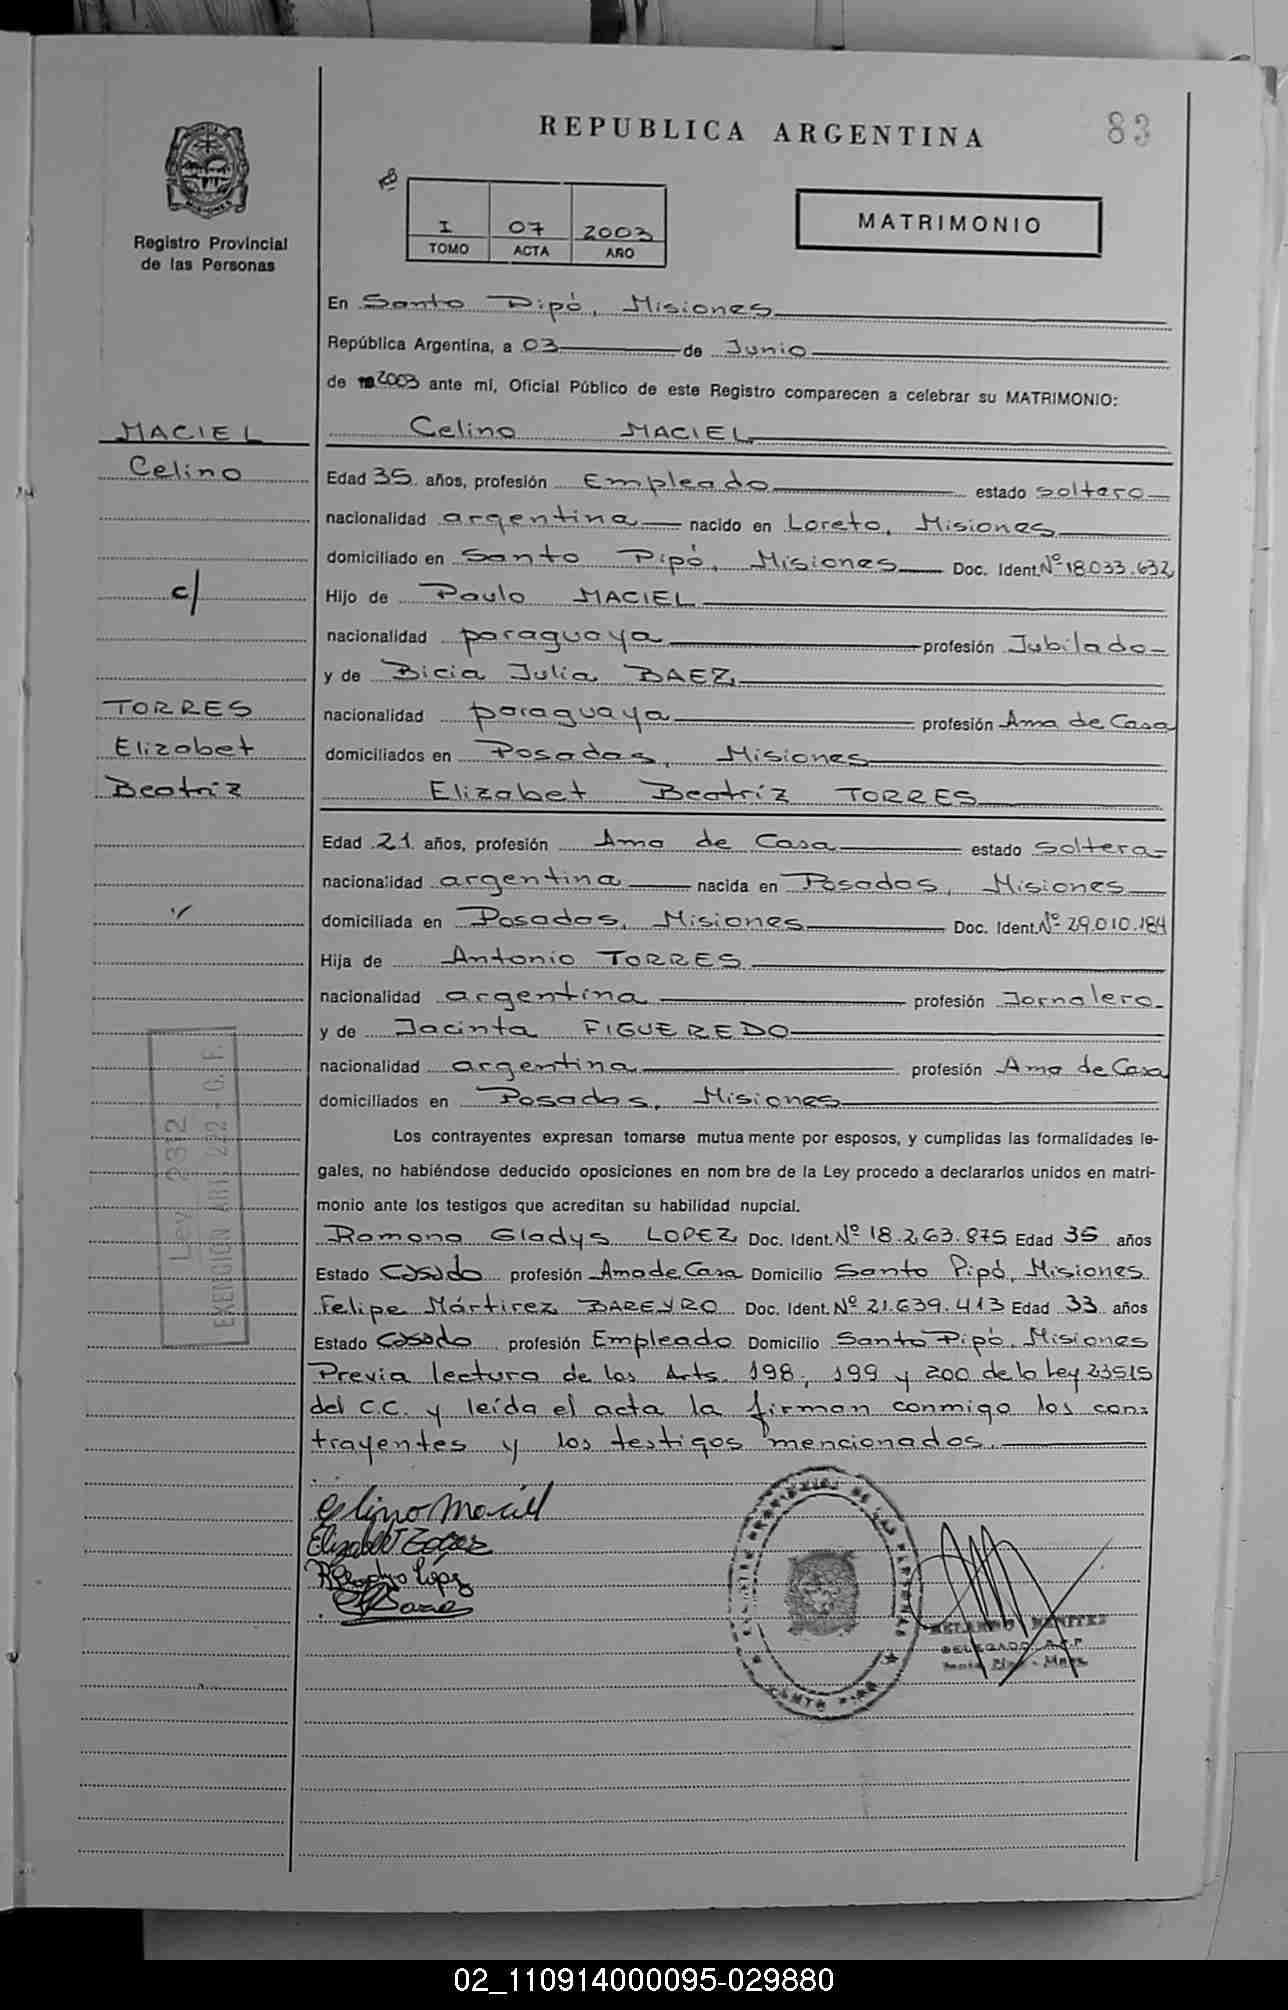 REPUBLICA ARGENTINA
83
Registro Provincial
de las Personas
I 07 2003
TOMO ACTA AÑO
MATRIMONIO
En Santo Pipó, Misiones
República Argentina, a 03 de Junio
de 2003 ante mí, Oficial Público de este Registro comparecen a celebrar su MATRIMONIO:
MACIEL
Celino
c/
TORRES
Elizabet
Beatriz
Celino MACIEL
Edad 35 años, profesión Empleado estado soltero
nacionalidad argentina nacido en Loreto, Misiones
domiciliado en Santo Pipó, Misiones Doc. Ident. Nº 18.033.632
Hijo de Paulo MACIEL
nacionalidad paraguaya profesión Jubilado
y de Bicia Julia BAEZ
nacionalidad paraguaya profesión Ama de Casa
domiciliados en Posadas, Misiones
Elizabet Beatriz TORRES
Edad 21 años, profesión Ama de Casa estado soltera
nacionalidad argentina nacida en Posadas, Misiones
domiciliada en Posadas, Misiones Doc. Ident. Nº 29.010.184
Hija de Antonio TORRES
nacionalidad argentina profesión Jornalero
y de Jacinta FIGUEREDO
nacionalidad argentina profesión Ama de Casa
domiciliados en Posadas, Misiones
Ley 2312
EXENCION ART. 222 - C.F.
Los contrayentes expresan tomarse mutua mente por esposos, y cumplidas las formalidades le-
gales, no habiéndose deducido oposiciones en nom bre de la Ley procedo a declararlos unidos en matri-
monio ante los testigos que acreditan su habilidad nupcial.
Ramona Gladys LOPEZ Doc. Ident. Nº 18.263.875 Edad 35 años
Estado Casado profesión Ama de Casa Domicilio Santo Pipó, Misiones
Felipe Mártirez BAREYRO Doc. Ident. Nº 21.639.413 Edad 33 años
Estado Casado profesión Empleado Domicilio Santo Pipó, Misiones
Previa lectura de los Arts. 198, 199 y 200 de la Ley 23515
del C.C. y leída el acta la firman conmigo los con-
trayentes y los testigos mencionados.
Celino Maciel
REGISTRO PROVINCIAL DE LAS PERSONAS
SANTO PIPO
BENITEZ
DELEGADO R.P.P.
Santo Pipó - Mnes.
02_110914000095-029880